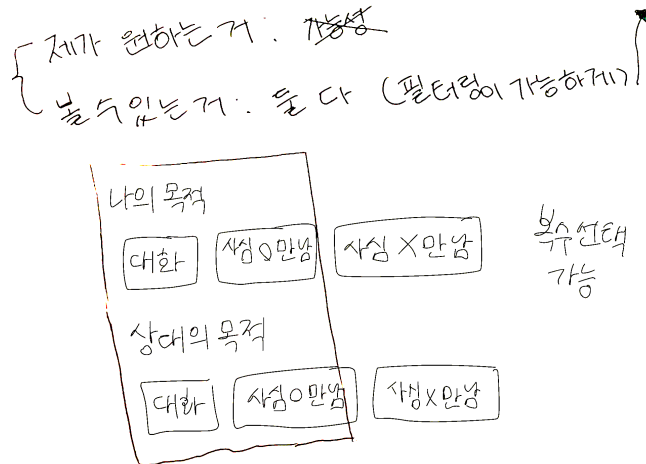 제가 원하는거: 가능성
볼수있는거: 둘 다 (필터링이 가능하게)
나의 목적
대화 사심O만남 사심X만남
복수선택
가능
상대의 목적
대화 사심O만남 사심X만남